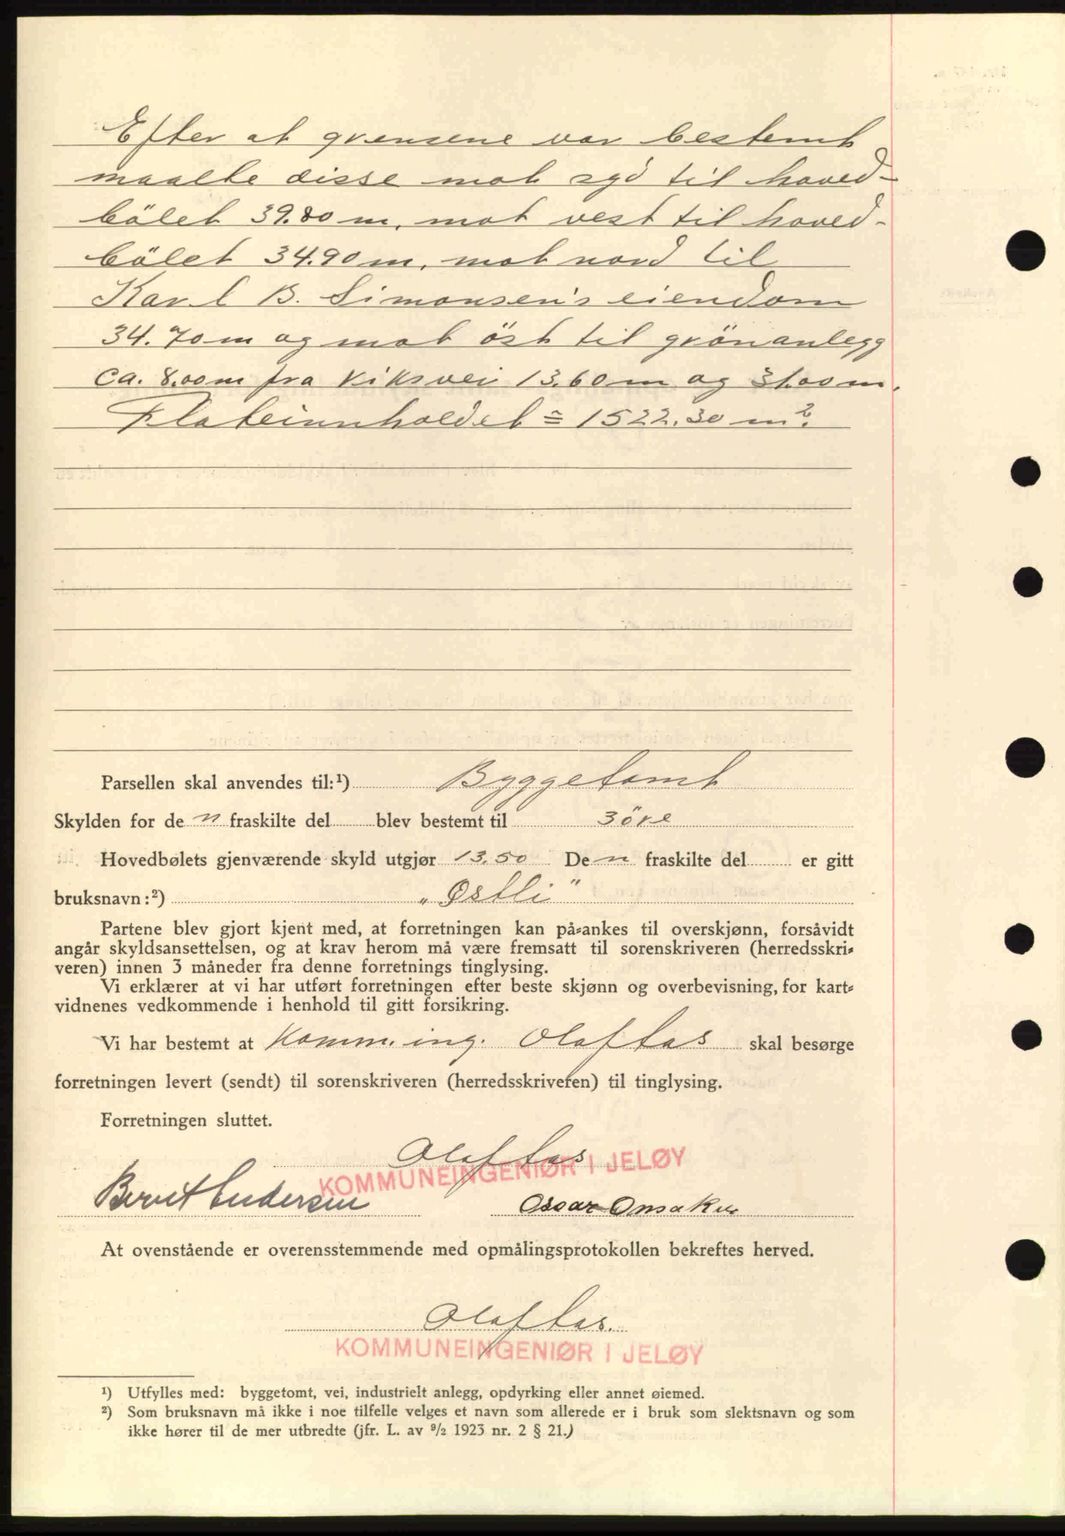 Efter at grensene var bestemt
maalte disse mot syd til hoved-
bölet 39.80 m, mot vest til hoved-
bölet 34.90 m, mot nord til
Karl B. Simonsen's eiendom
34.70 m og mot öst til grönanlegg
ca. 8.00 m fra Kiksvei 13.60 m og 31.00 m.
Flateinnholdet = 1522.30 m².
Parsellen skal anvendes til:¹) Byggetomt
Skylden for de n fraskilte del blev bestemt til 3 öre
Hovedbølets gjenværende skyld utgjør 13.50 De n fraskilte del er gitt
bruksnavn:²) „Østli"
Partene blev gjort kjent med, at forretningen kan på-ankes til overskjønn, forsåvidt
angår skyldsansettelsen, og at krav herom må være fremsatt til sorenskriveren (herredsskri-
veren) innen 3 måneder fra denne forretnings tinglysing.
Vi erklærer at vi har utført forretningen efter beste skjønn og overbevisning, for kart-
vidnenes vedkommende i henhold til gitt forsikring.
Vi har bestemt at Komm. ing. Olaf Aas skal besørge
forretningen levert (sendt) til sorenskriveren (herredsskriveren) til tinglysing.
Forretningen sluttet.
Olaf Aas
KOMMUNEINGENIØR I JELØY
Berit Andersen Oscar Onsaker
At ovenstående er overensstemmende med opmålingsprotokollen bekreftes herved.
Olaf Aas.
KOMMUNEINGENIØR I JELØY
¹) Utfylles med: byggetomt, vei, industrielt anlegg, opdyrking eller annet øiemed.
²) Som bruksnavn må ikke i noe tilfelle velges et navn som allerede er i bruk som slektsnavn og som
ikke hører til de mer utbredte (jfr. L. av 9/2 1923 nr. 2 § 21.)